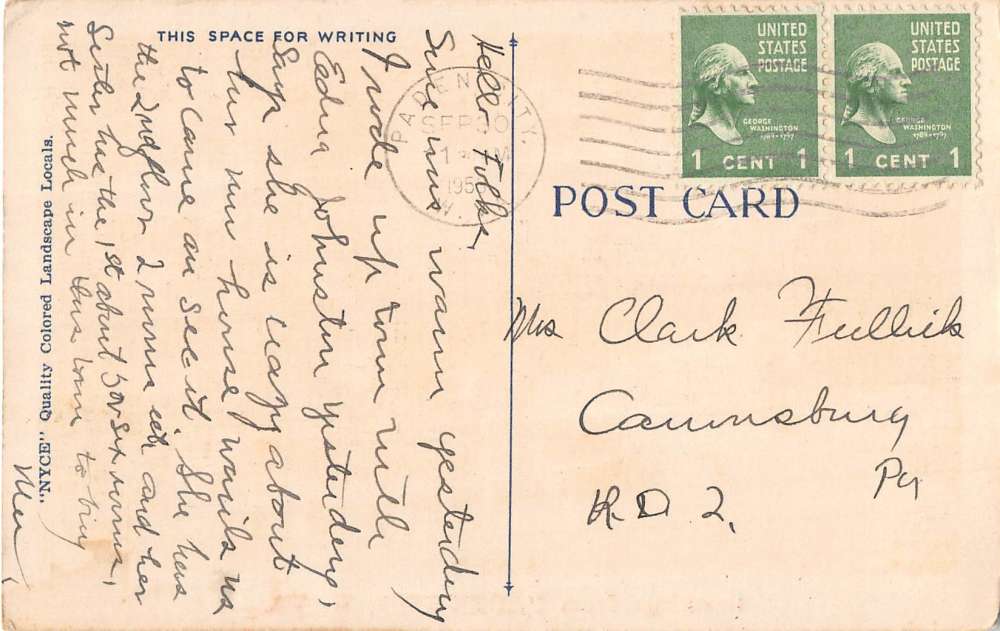 THIS SPACE FOR WRITING
Hello Folks,
Sure was warm yesterday
I rode up town with
Edna Johnston yesterday,
Says she is crazy about
her new house wants us
to come an see it. She has
the 2nd floor 2 rooms
and her
the 1st about 5 or six rooms,
not much in this town to buy
"NYCE" Quality Colored Landscape Locals.
PADEN CITY,
SEP
195
W.
UNITED
STATES
POSTAGE
GEORGE
WASHINGTON
1789-1797
1 CENT 1
UNITED
STATES
POSTAGE
GEORGE
WASHINGTON
1789-1797
1 CENT 1
POST CARD
Mrs Clark
Pa
R. D 2.